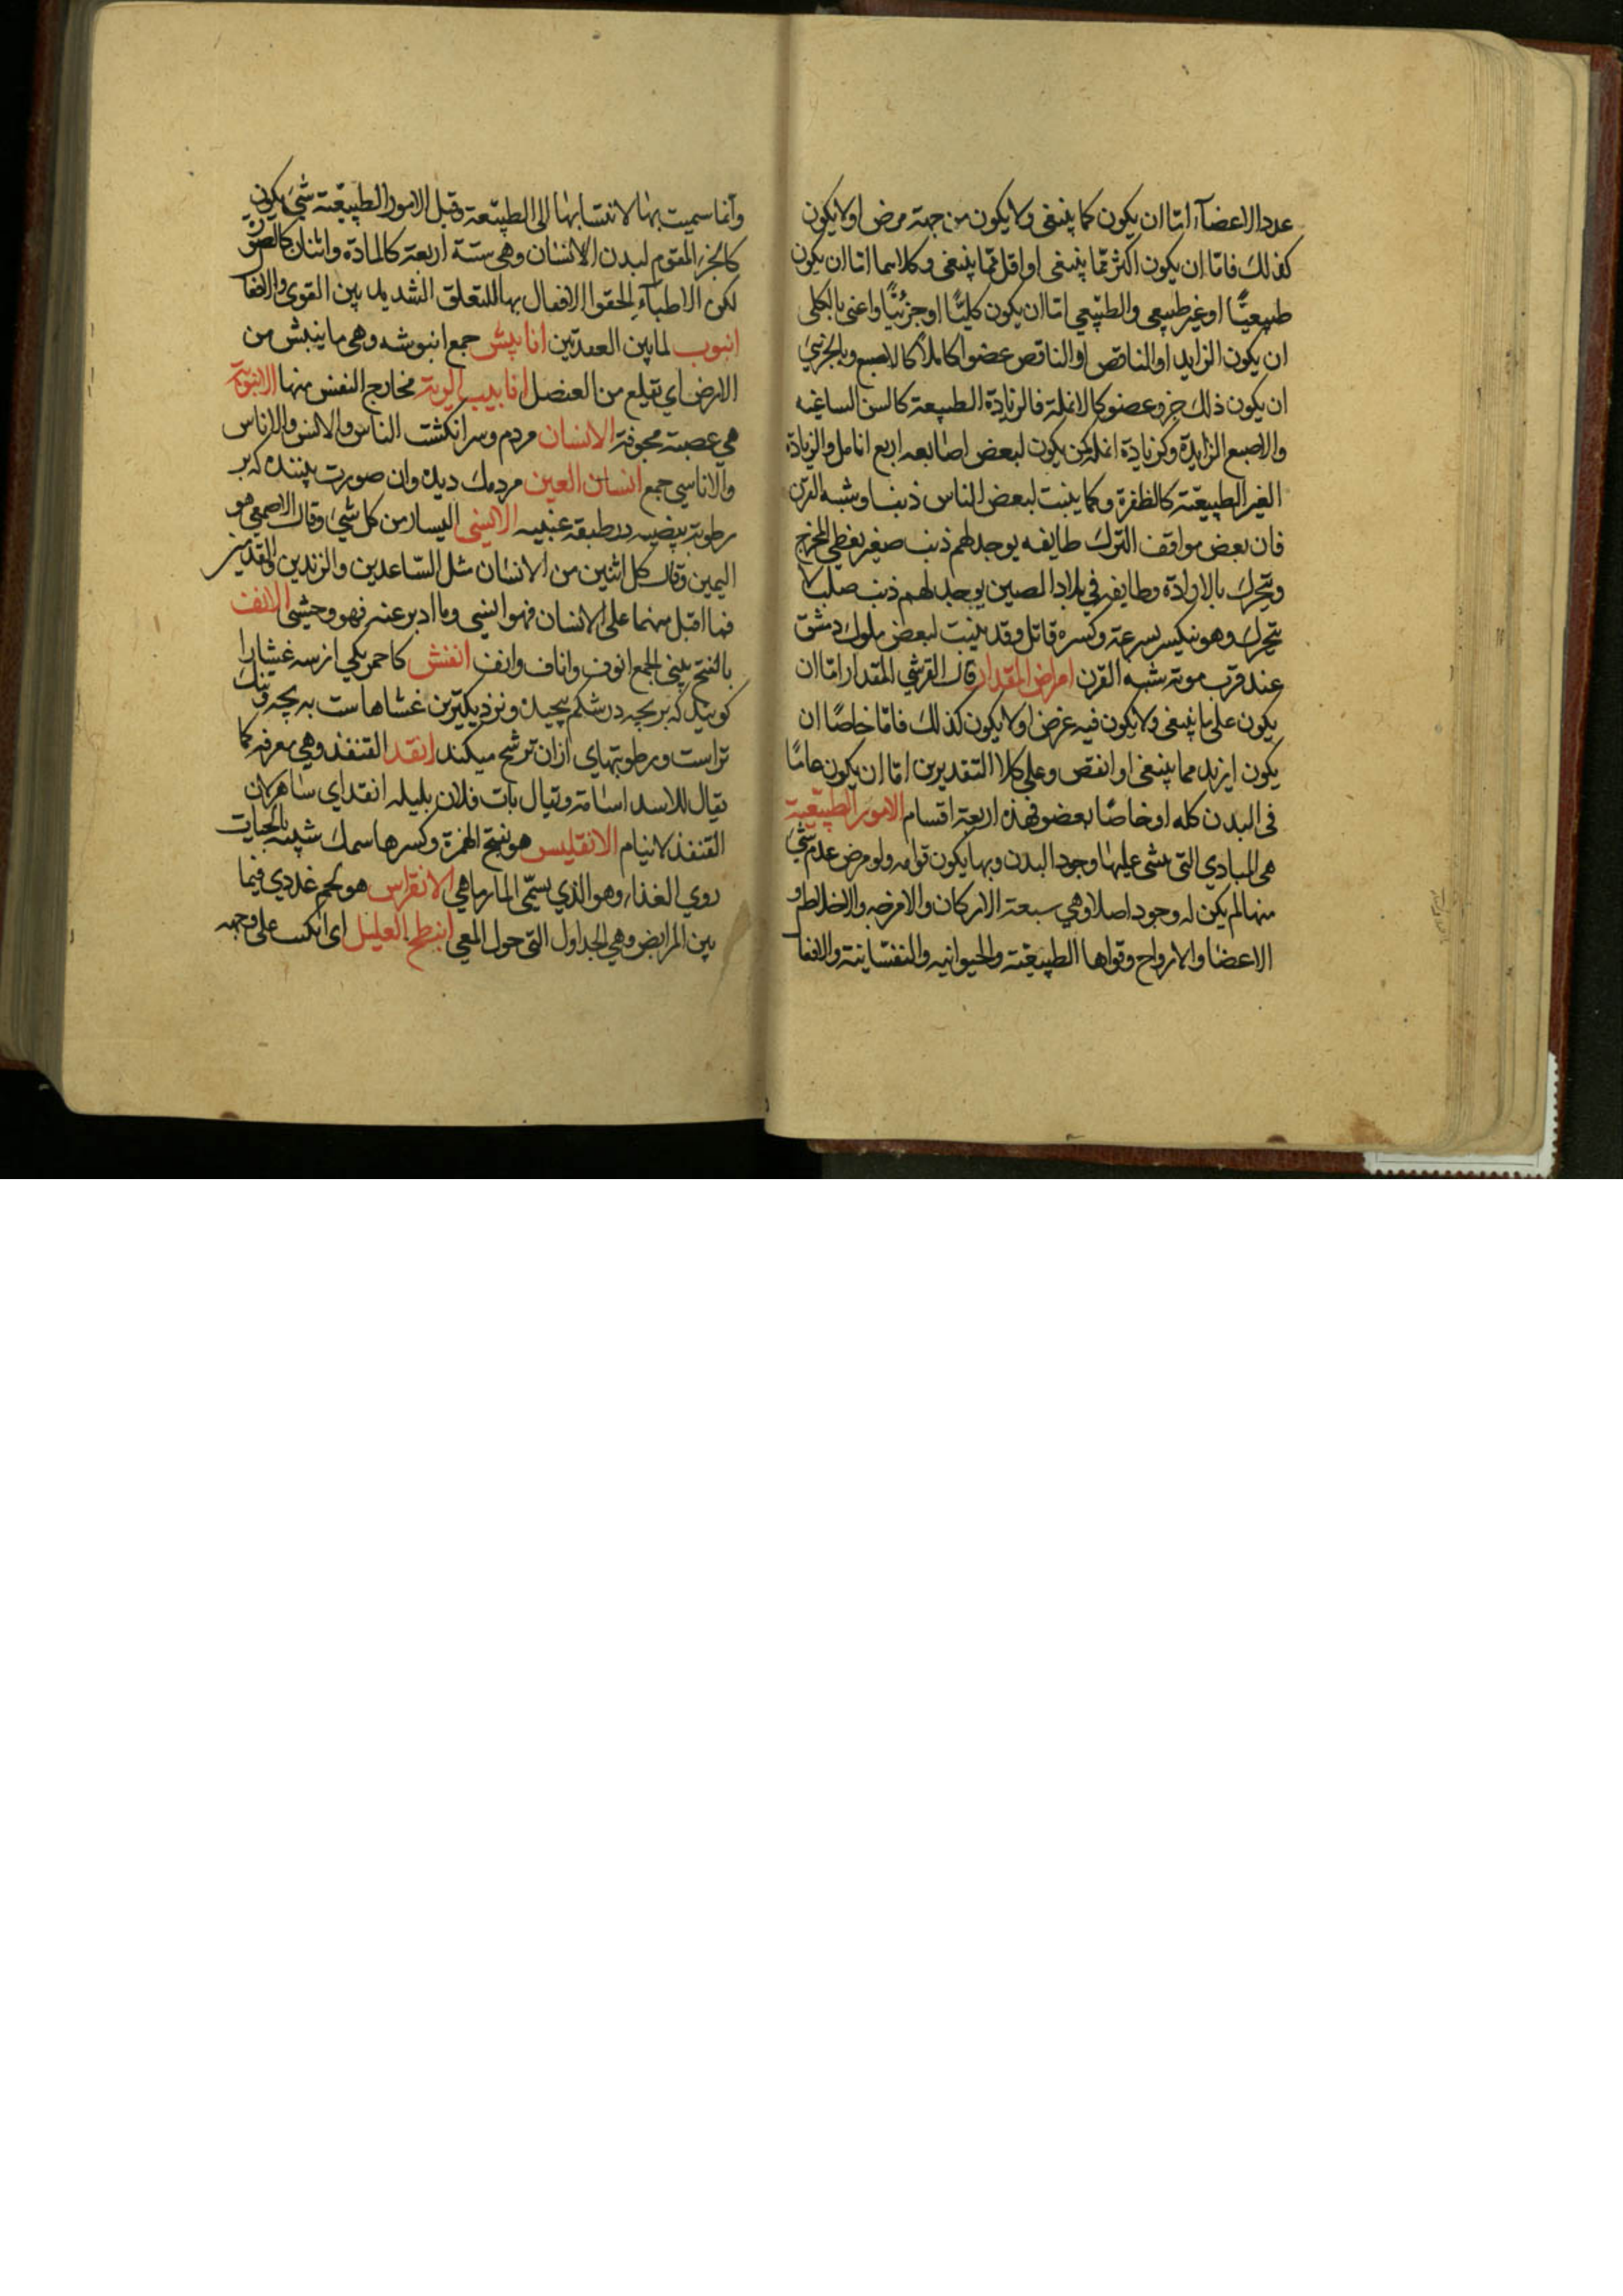 عدد الاعضاء اما ان يكون كما ينبغى ولا يكون من جهته مرض او لا يكون
كذلك فاما ان يكون اكثر مما ينبغى او اقل مما ينبغى وكلاهما اما ان يكون
طبيعيًا او غير طبيعى والطبيعى اما ان يكون كليًا او جزئيًا واعنى بالكلى
ان يكون الزايد او الناقص او الناقص عضوا كاملا كالاصبع وبالجزئى
ان يكون ذلك جزو عضو كالانملة فالزيادة الطبيعة كالسن الساغيه
والاصبع الزايدة وكزيادة انملة كمن يكون لبعض اصابعه اربع انامل والزيادة
الغير الطبيعية كالظفرة وكما ينبت لبعض الناس ذنبا وشبه القرن
فان بعض مواقف الترك طايفه يوجد لهم ذنب صغير يغطى المخرج
ويتحرك بالارادة وطايفه فى بلاد الصين يوجد لهم ذنب صلب لا
يتحرك وهو ينكسر بسرعة وكسره قاتل وقد ينبت لبعض ملوك دمشق
عند قرب موته شبه القرن امراض المقدار قال القرشى المقدار اما ان
يكون على ما ينبغى ولا يكون فيه عرض او لا يكون كذلك فاما خاصًا ان
يكون ازيد مما ينبغى او انقص وعلى كلا التقديرين اما ان يكون عامًا
فى البدن كله او خاصًا بعضو فهذه اربعة اقسام الامور الطبيعية
هى المبادى التى عليها وجود البدن وبها يكون قوامه ولو فرض عدم شئ
منها لم يكن له وجود اصلا وهى سبعة الاركان والامزجه والاخلاط و
الاعضا والارواح وقواها الطبيعية والحيوانيه والنفسانية والافعا
وانما سميت بها لانتسابها الى الطبيعة وقيل الامور الطبيعية شئ يكون
كالجزء المقوم لبدن الانسان وهى ستة اربعة كالمادة واثنان كالصورة
لكن الاطباء الحقوا الافعال بها للتعلق الشديد بين القوى والافعا
انبوب لما بين العقدتين انابيش جمع انبوشه وهى ما ينبش من
الارض اى تقلع من العنصل انابيب الرية مخارج النفس منها الانبوبة
هى عصبة مجوفة الانسان مردم وسر انكشت الناس والانس والاناس
والاناسى جمع انسان العين مردمك ديده وان صورت بيننده كه بر
رطوبة بيضيه در طبقه عنبيه الانسى اليسار من كل شئ وقال الاصمعى هو
اليمين وقال كل اثنين من الانسان مثل الساعدين والزندين والقدمين
فما اقبل منهما على الانسان فهو انسى وما ادبر عنه فهو وحشى الانف
بالفتح بينى الجمع انوف واناف وانف انفش كاحمر يكى از سه غشا را
كويند كه بر بچه در شكم پيچيده ونزديكترين غشاهاست به بچه وتنك
تر است ورطوبتهاى ازان ترشح ميكند انقد القنفذ وهى معرفه كما
يقال للاسد اسامة ويقال بات فلان بليله انقد اى ساهر لان
القنفذ لا ينام الانقليس هو بفتح الهمزة وكسرها سمك شبيه بالحيات
روى الغذاء وهو الذى يسمى المارماهى الانقراس هو لحم غددى فيما
بين المرابض وهى الجداول التى حول المعى انبطح العليل اى انكب على وجهه